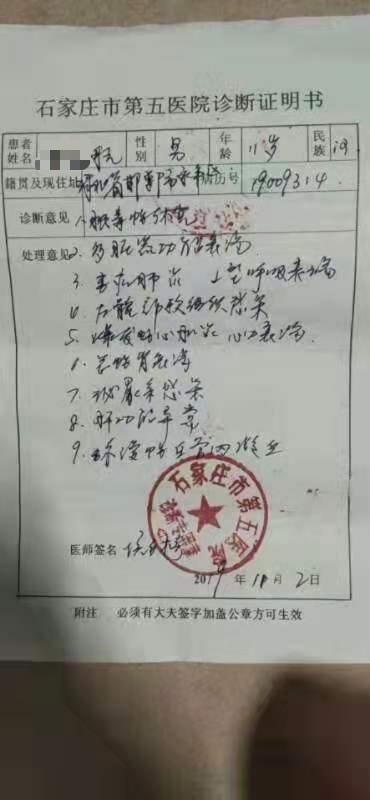 石家庄市第五医院诊断证明书
患者姓名 性别 男 年龄 11岁 民族 汉
籍贯及现住址 河北省邯郸市 病历号 19009314
诊断意见 1.脓毒性休克
处理意见 2.多脏器功能衰竭
3.重症肺炎 I型呼吸衰竭
4.左髋部软组织感染
5. 心肌炎 心力衰竭
6. 肾衰竭
7.泌尿系感染
8.肝功能异常
9.弥漫性血管内凝血
石家庄市第五医院
医师签名
2019年11月2日
附注 必须有大夫签字加盖公章方可生效